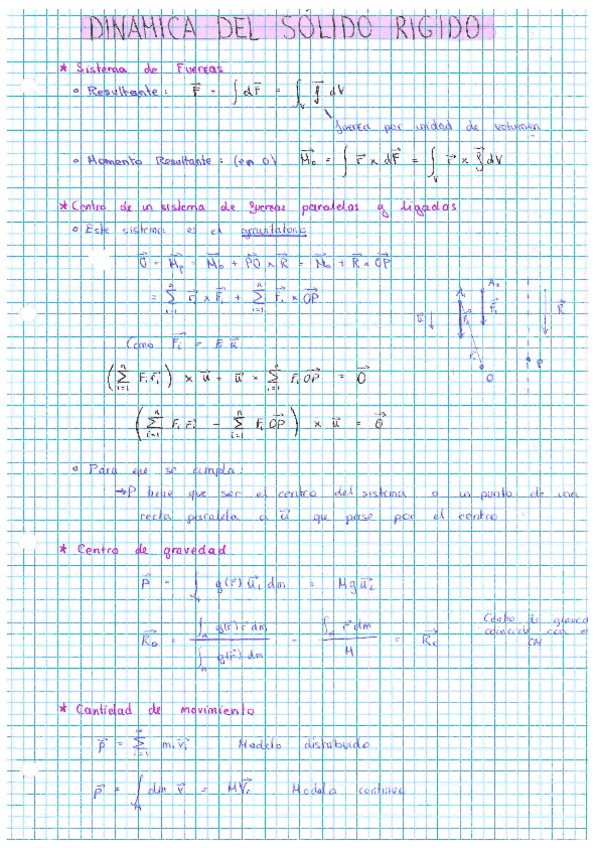 DINAMICA DEL SOLIDO RIGIDO
* Sistema de Fuerzas
o Resultante: F⃗ = ∫dF⃗ = ∫_V f⃗ dV
fuerza por unidad de volumen
o Momento Resultante: (en O) M⃗o = ∫ r⃗ x dF⃗ = ∫_V r⃗ x f⃗ dV
* Centro de un sistema de fuerzas paralelas y ligadas
o Este sistema es el gravitatorio
0⃗ = M⃗p = M⃗o + PO⃗ x R⃗ = M⃗o + R⃗ x OP⃗
= Σ_{i=1}^{n} r⃗i x F⃗i + Σ_{i=1}^{n} F⃗i x OP⃗
Como F⃗i = Fi u⃗
(Σ_{i=1}^{n} Fi r⃗i) x u⃗ + u⃗ x Σ_{i=1}^{n} Fi OP⃗ = 0⃗
(Σ_{i=1}^{n} Fi r⃗i - Σ_{i=1}^{n} Fi OP⃗) x u⃗ = 0⃗
u⃗
A₂
F⃗i
R⃗
P
O
o Para que se cumpla:
→P tiene que ser el centro del sistema o un punto de una
recta paralela a u⃗ que pase por el centro
* Centro de gravedad
P⃗ = ∫ g(r⃗) u⃗i dm = Mg u⃗i
R⃗G = ∫ g(r⃗) r⃗ dm / ∫ g(r⃗) dm = ∫ r⃗ dm / M = R⃗c
Centro de graved
coincide con el
CM
* Cantidad de movimiento
p⃗ = Σ_{i=1}^{n} mi v⃗i Modelo distribuido
p⃗ = ∫ dm v⃗ = M V⃗c Modelo continuo